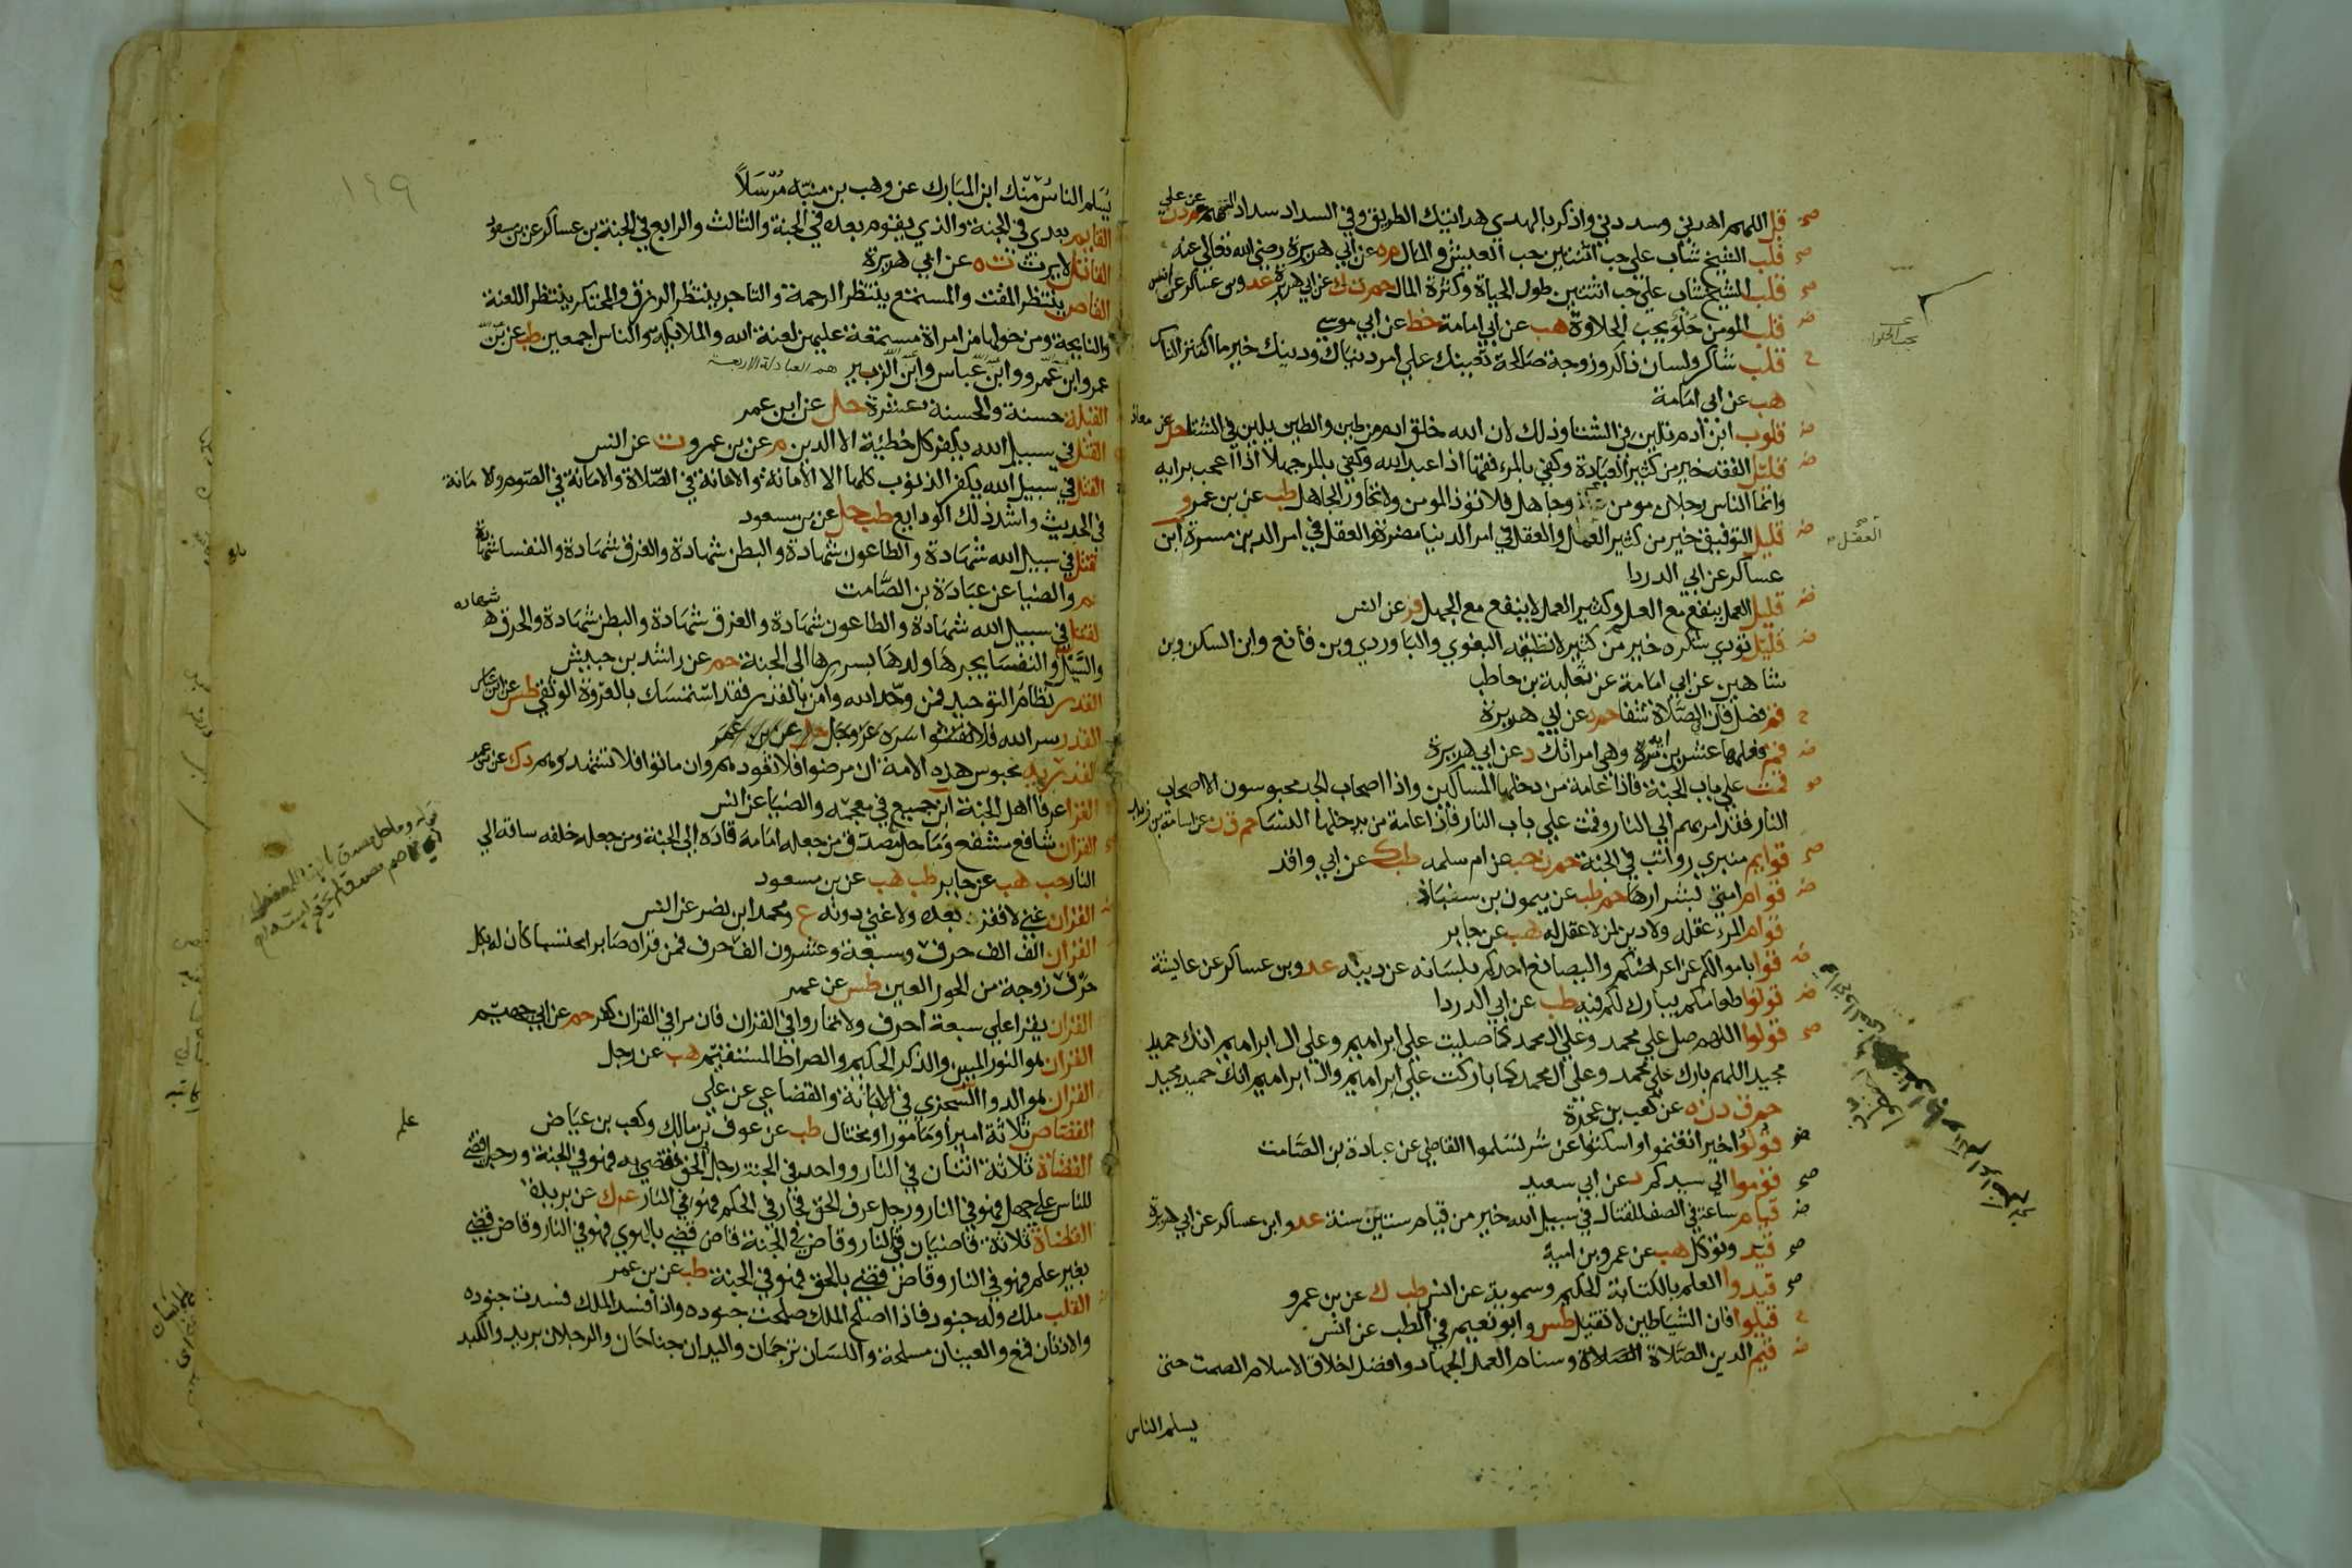 قل اللهم اهدني وسددني واذكر بالهدى هدايتك الطريق وفي السداد سداد السهم م د ن عن علي
قلب الشيخ شاب على حب اثنتين حب العيش والمال م ه عن ابي هريرة رضي الله تعالى عنه
قلب الشيخ شاب علي حب اثنتين طول الحياة وكثرة المال حم ت ك عن ابي هريرة عد وبن عساكر عن انس
قلب المومن حلو يحب الحلاوة هب عن ابي امامة خط عن ابي موسى
قلب شاكر ولسان ذاكر وزوجة صالحة تعينك علي امر دنياك ودينك خير ما اكتنز الناس
هب عن ابي امامة
قلوب ابن ادم تلين في الشتا وذلك لان الله خلق ادم من طين والطين يلين في الشتا حل عن معاذ
قليل الفقه خير من كثير العبادة وكفي بالمرء فقها اذا عبد الله وكفي بالمرء جهلا اذا اعجب برايه
وانما الناس رجلان مومن وجاهل فلا تؤذ المومن ولا تحاور الجاهل طب عن بن عمرو
قليل التوفيق خير من كثير العمل والعقل في امر الدنيا مضرة والعقل في امر الدين مسرة ابن
العقل
عساكر عن ابي الدردا
قليل العمل ينفع مع العلم وكثير العمل لا ينفع مع الجهل فر عن انس
قليل تودي شكره خير من كثير لا تطيقه البغوي والباوردي وبن قانع وابن السكن وبن
شاهين عن ابي امامة عن ثعلبة بن حاطب
قم فصل فان الصلاة شفا حم ه عن ابي هريرة
قم فعلمها عشرين اية وهي امراتك د عن ابي هريرة
قمت علي باب الجنة فاذا عامة من دخلها المساكين واذا اصحاب الجد محبوسون الا اصحاب
النار فقد امر بهم الي النار وقمت علي باب النار فاذا عامة من يدخلها النسا حم ق ن عن اسامة بن زيد
قوايم منبري رواتب في الجنة حم ن حب عن ام سلمه طب ك عن ابي واقد
قوام امتي بشرارها حم طب عن ميمون بن سنباذ
قوام المرء عقله ولا دين لمن لا عقل له هب عن جابر
قوا باموالكم عن اعراضكم وليصانع احدكم بلسانه عن دينه عد وبن عساكر عن عايشة
قوتوا طعامكم يبارك لكم فيه طب عن ابي الدردا
قولوا اللهم صل علي محمد وعلي ال محمد كما صليت علي ابراهيم وعلي ال ابراهيم انك حميد
مجيد اللهم بارك علي محمد وعلي ال محمد كما باركت علي ابراهيم وال ابراهيم انك حميد مجيد
حم ق د ن ه عن كعب بن عجرة
قولوا خيرا تغنموا واسكتوا عن شر تسلموا القضاعي عن عبادة بن الصامت
قوموا الي سيدكم د عن ابي سعيد
قيام ساعة في الصف للقتال في سبيل الله خير من قيام ستين سنة عد وابن عساكر عن ابي هريرة
قيد وتوكل هب عن عمرو بن امية
قيدوا العلم بالكتابة الحكيم وسموية عن انس طب ك عن بن عمرو
قيلوا فان الشياطين لا تقيل طس وابو نعيم في الطب عن انس
قيم الدين الصلاة وسنام العمل الجهاد وافضل اخلاق الاسلام الصمت حتى
يسلم الناس
١٤٩
يسلم الناس منك ابن المبارك عن وهب بن منبه مرسلا
القايم بعدي في الجنة والذي يقوم بعده في الجنة والثالث والرابع في الجنة بن عساكر عن بن مسعود
القاتل لا يرث ت ه عن ابي هريرة
القاص ينتظر المقت والمستمع ينتظر الرحمة والتاجر ينتظر الرزق والمحتكر ينتظر اللعنة
والنايحة ومن حولها من امراة مستمعة عليهن لعنة الله والملايكة والناس اجمعين طب عن بن
عمر وابن عمرو وابن عباس وابن الزبير هم العبادلة الاربعة
القبلة حسنة والحسنة بعشرة حل عن ابن عمر
القتل في سبيل الله يكفر كل خطيئة الا الدين م عن بن عمرو ت عن انس
القتل في سبيل الله يكفر الذنوب كلها الا الامانة والامانة في الصلاة والامانة في الصوم والامانة
في الحديث واشد ذلك الودايع طب حل عن بن مسعود
القتل في سبيل الله شهادة والطاعون شهادة والبطن شهادة والغرق شهادة والنفسا شهادة
حم والضيا عن عبادة بن الصامت
القتل في سبيل الله شهادة والطاعون شهادة والغرق شهادة والبطن شهادة والحرق شهادة
والسيل والنفسا يجرها ولدها بسررها الى الجنة حم عن راشد بن حبيش
القدر نظام التوحيد فمن وحد الله وامن بالقدر فقد استمسك بالعروة الوثقى طس عن ابن عباس
القدر سر الله فلا تفشوا سره عز وجل حل عن بن عمر
القدرية مجوس هذه الامة ان مرضوا فلا تعودوهم وان ماتوا فلا تشهدوهم د ك عن بن عمر
القرا عرفا اهل الجنة ابن جميع في معجمه والضيا عن انس
القران شافع مشفع وماحل مصدق من جعله امامه قاده الي الجنة ومن جعله خلفه ساقه الي
النار حب هب عن جابر طب هب عن بن مسعود
القران غني لا فقر بعده ولا غني دونه ع ومحمد ابن نصر عن انس
القران الف الف حرف وسبعة وعشرون الف حرف فمن قراه صابرا محتسبا كان له بكل
حرف زوجة من الحور العين طس عن عمر
القران يقرا علي سبعة احرف ولا تماروا في القران فان مرا في القران كفر حم عن ابي جهيم
القران هو النور المبين والذكر الحكيم والصراط المستقيم هب عن رجل
القران هو الدوا السجزي في الابانة والقضاعي عن علي
القصاص ثلاثة امير او مامور او مختال طب عن عوف بن مالك وكعب بن عياض
القضاة ثلاثة اثنان في النار وواحد في الجنة رجل علم الحق فقضي به فهو في الجنة ورجل قضي
للناس علي جهل فهو في النار ورجل عرف الحق فجار في الحكم فهو في النار ع ك عن بريدة
القضاة ثلاثة قاضيان في النار وقاض في الجنة قاض قضي بالهوي فهو في النار وقاض قضي
بغير علم فهو في النار وقاض قضي بالحق فهو في الجنة طب عن بن عمر
القلب ملك وله جنود فاذا اصلح الملك صلحت جنوده واذا فسد الملك فسدت جنوده
والاذنان قمع والعينان مسلحة واللسان ترجمان واليدان جناحان والرجلان بريد والكبد
علم